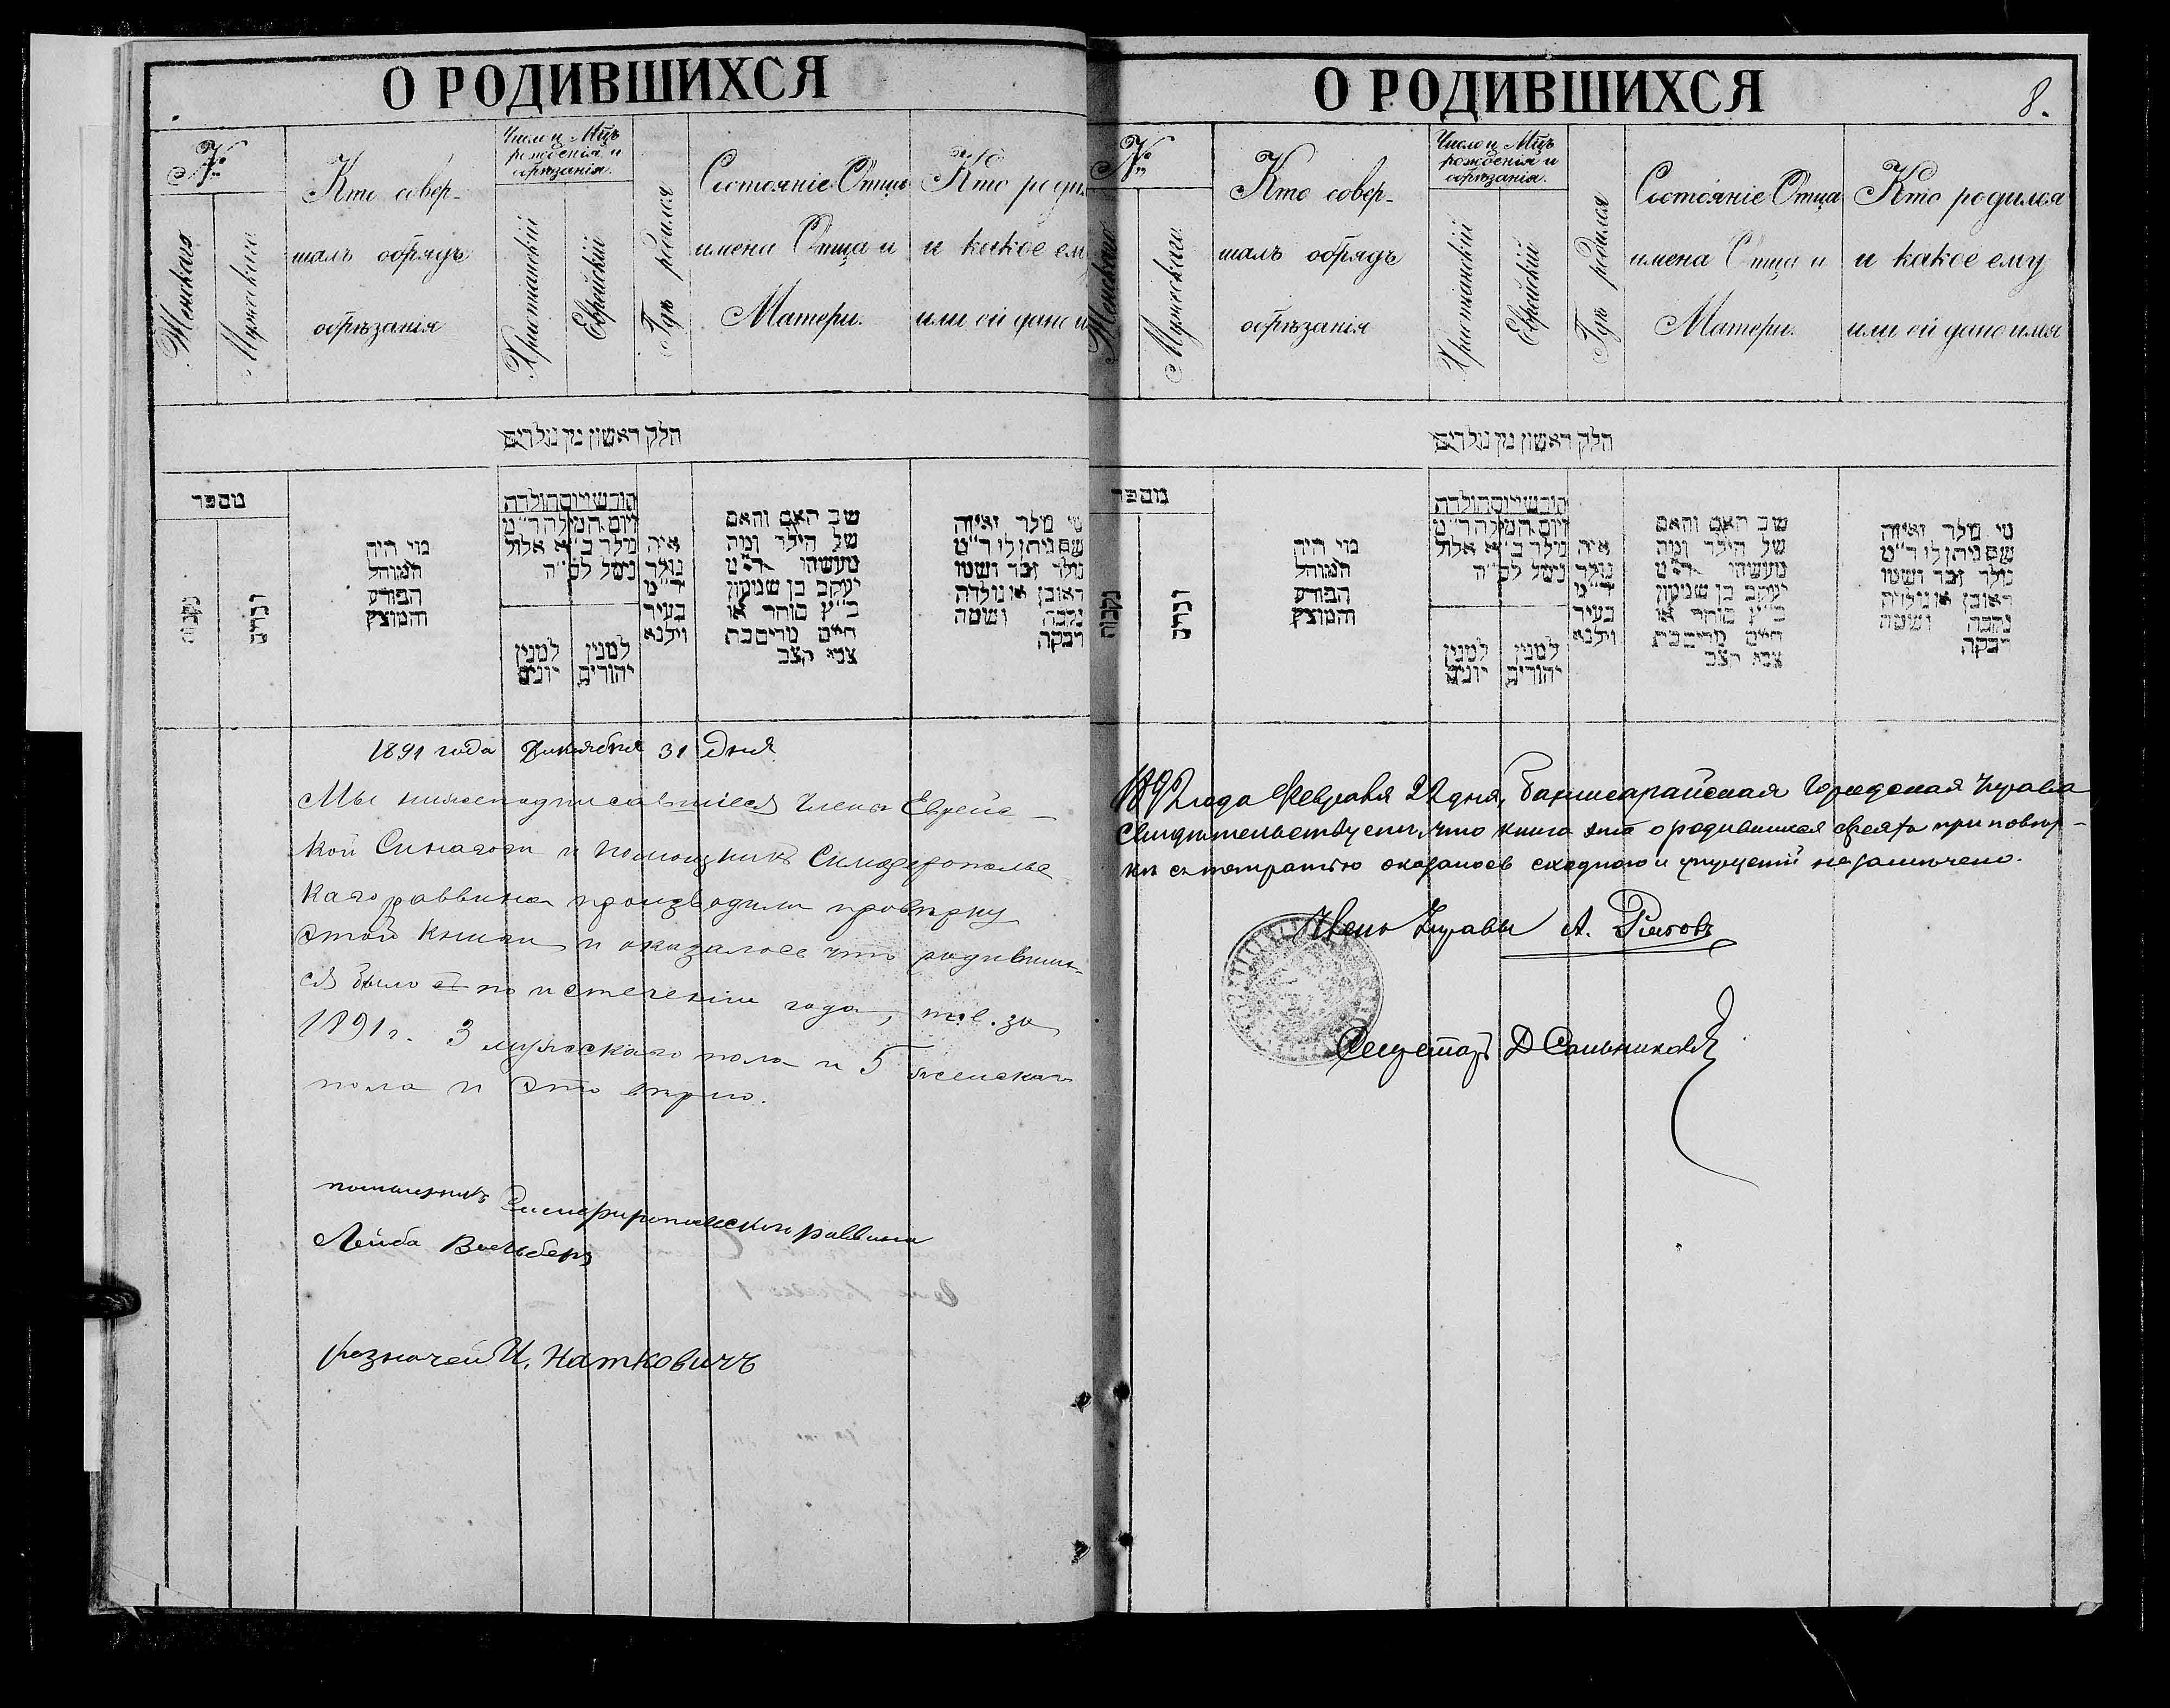 О РОДИВШИХСЯ
№
Женскаго
Мужескаго
Кто совер-
шалъ обрядъ
обрѣзанія
Число и Мцъ
рожденія и
обрѣзанія.
Христианскій
Еврейскій
Гдѣ родился
Состояніе Отца
имена Отца и
Матери.
Кто роди
и какое ем
или ей дано и
חלק ראשון מן נולדים
מספר
נקבות
זכרים
מי היה
המוהל
הפורע
והמוצץ
חודש ויום הולדה
ויום המילה ד״מ
נולד כ״א אלול
נימל לס״ה
למנין
יונים
למנין
יהודים
איה
נולד
ד״מ
בעיר
וילנא
שב האם והאם
של הילד ומה
מעשיהו ד״מ
יעקב בן שמעון
כ״ץ סוחר או
חיים מרים בת
צבי קצב
מי מלד ואיזה
שם ניתן לו ד״מ
נולד זכר ושמו
ראובן או נולדה
נקבה ושמה
רבקה
1891 года Декабря 31 Дня
Мы нижеподписавшіеся Члены Еврейс-
кой Синагоги и помощникъ Симферопольс
каго раввина производили провѣрку
этой книги и оказалось что родивших-
ся было по истеченіи года, т.е. за
1891 г. 3 мужескаго пола и 5 женскаго
пола и это вѣрно.
помощникъ Симферопольского раввина
Лейба
Казначей И. Наткович
О РОДИВШИХСЯ
8.
№
Женскаго
Мужескаго
Кто совер-
шалъ обрядъ
обрѣзанія
Число и Мцъ
рожденія и
обрѣзанія.
Христианскій
Еврейскій
Гдѣ родился
Состояніе Отца
имена Отца и
Матери.
Кто родился
и какое ему
или ей дано имя
חלק ראשון מן נולדים
מספר
נקבות
זכרים
מי היה
המוהל
הפורע
והמוצץ
חודש ויום הולדה
ויום המילה ד״מ
נולד כ״א אלול
נימל לס״ה
למנין
יונים
למנין
יהודים
איה
נולד
ד״מ
בעיר
וילנא
שב האם והאם
של הילד ומה
מעשיהו ד״מ
יעקב בן שמעון
כ״ץ סוחר או
חיים מרים בת
צבי קצב
מי מלד ואיזה
שם ניתן לו ד״מ
נולד זכר ושמו
ראובן או נולדה
נקבה ושמה
רבקה
1892 года Февраля 22 дня, Бахчисарайская Городская Управа
свидѣтельствуетъ, что книга эта о родившихся евреяхъ при повѣр-
кѣ съ тетратью оказалось сходною и упущеній не замѣчено.
Членъ Управы А.
Секретарь Д Сальников